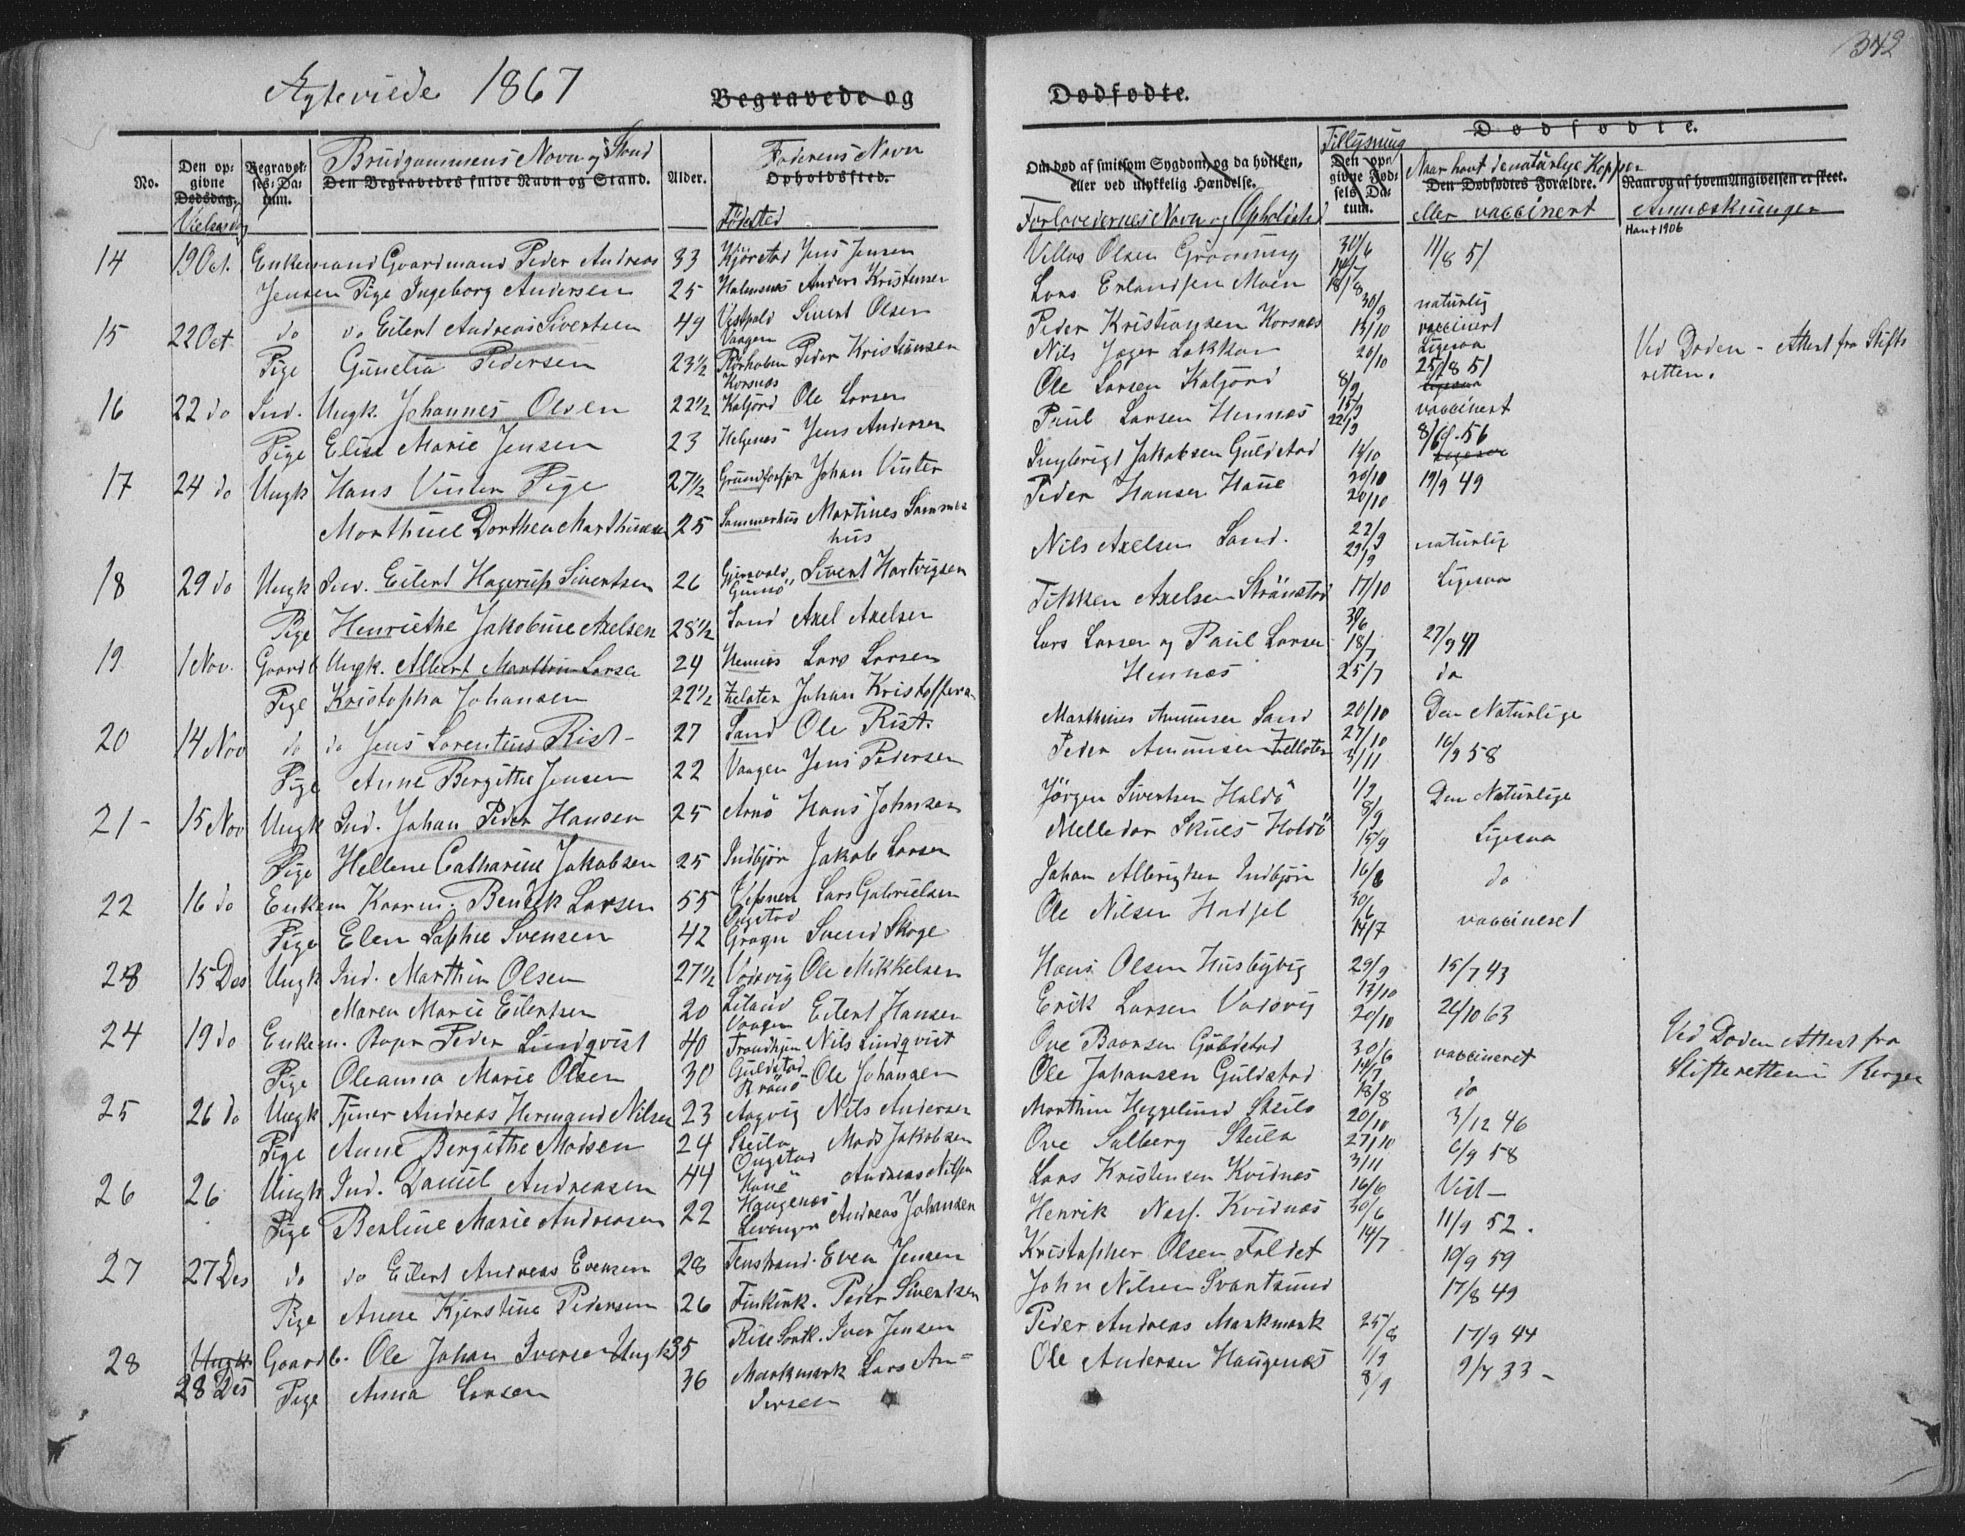 342
Ægteviede 1867 Begravede og Dødfødte.
No.
Den opgivne Dødsdag.
Vielsesdag
Begravelses-Datum.
Brudgommens Navn og Stand
Den Begravedes fulde Navn og Stand.
Alder.
Faderens Navn
Opholdssted.
Fødested
Om død af smitsom Sygdom, og da hvilken, eller ved ulykkelig Hændelse.
Forlovedernes Navn og Opholdsted
Tillysning
Den opgivne Fødsels-Datum.
Dødfødte.
Naar havt de naturlige Kopper
Den Dødfødtes Forældre.
eller vaccinert
Naar og af hvem Angivelsen er skeet.
Anmærkninger
14 19 Oct. Enkemand Gaardmand Peder Andreas 33 Kjørstad Jens Jensen Villas Olsen Grønning 30/6 11/8 51
Jensen Pige Ingeborg Andersen 25 Anders Kristensen Lars Erlandsen Moen 14/7 18/8 naturlig
15 22 Oct. do do Eilert Andreas Sivertsen 49 Vestpold Vaagen Sivert Olsen Peder Kristiansen Korsnæs 30/9 13/10 vaccinert
Pige Gunelia Pedersen 23 1/2 Rørholmen Korsnæs Peder Kristiansen Nils Jæger Løkkan 20/10 Ligesaa Ved Døden - Attest fra Skifteretten.
16 22 do Ind. Ungk. Johannes Olsen 22 1/2 Kaljord Ole Larsen Ole Larsen Kaljord 8/9 25/8 51
Pige Elise Marie Jensen 23 Helgenæs Jens Andersen Paul Larsen Hennæs 15/9 22/9 vaccinert
17 24 do Ungk Hans Vinter Pige 27 1/2 Johan Vinter Ingbrigt Jakobsen Guldstad 13/10 8/6 56
Peder Hansen Haue 20/10 20/10 19/9 49
Marthuel Dorthea Marthinsen 25 Sammerhus Martines Sammerhus
18 29 do Ungk Ind. Eilert Hagerup Sivertsen 26 Sivert Hartvigsen Nils Axelsen Sand. 22/9 29/9 naturlig
Pige Henriethe Jakobine Axelsen 28 1/2 Sand Axel Axelsen Axelsen Strønstad 17/10 Ligesaa
19 1 Nov. Gaardb Ungk. Albert Marthin Larsen 24 Hennæs Lars Larsen Lars Larsen og Paul Larsen 30/6 18/7 27/9 41
Pige Kristopha Johansen 22 1/2 Johan Kristoffersen Hennæs 25/7 do
20 14 Nov do do Jens Lorentius Rist 27 Sand Ole Rist. Marthines Amunsen Sand 20/10 Den Naturlige
Pige Anne Bergithe Jensen 22 Vaagen Jens Pedersen Peder Amunsen 27/10 3/11 16/9 58
21 - 15 Nov Ungk Ind. Johan Peder Hansen 25 Arnø Hans Johnsen Jørgen Sivertsen Haldø 1/9 Den Naturlige
Pige Hellene Catharine Jakobsen 25 Indbjør Jakob Larsen Melledor Skues Holdø 8/9 15/9 Ligesaa
22 16 do Enkem Kaarm. Bendik Larsen 55 Vefsnen Ongstad Lars Gabrielsen Johan Albrigtsen Indbjør 16/6 do
Pige Elen Sophie Svensen 42 Svend Skoge Ole Nilsen Hadsel 30/6 14/7 vaccineret
23 15 Des Ungk Ind. Marthin Olsen 27 1/2 Vodsvig Ole Mikkelsen Hans Olsen Husbyvig 29/9 15/7 43
Maren Marie Eilertsen 20 Vaagen Eilert Hansen Erik Larsen Vadsvig 17/10 20/10 26/10 63
24 19 do Enkem. Peder Lindqvist 40 Trondhjem Nils Lindqvist Ove Baarsen Guldstad 30/6 vaccineret Ved Døden Attest fra
Pige Oleanna Marie Olsen 30 Guldstad Ole Johansen Ole Johansen Guldstad 14/7 18/8 do Skifteretten i Bergen
25 26 do Ungk Tjener Andreas Hermand Nilsen 23 Aagvig Nils Andersen Marthin Heggelund Steilo 20/10 3/12 46
Pige Anne Bergithe Madsen 24 Steilo Ongstad Mads Jakobsen Ove Salberg Steilo 27/10 3/11 6/9 58
26 26 Ungk Ind. Daniel Andreasen 44 Haue Andreas Nilsen Lars Kristensen Kvidnæs 16/6 Vist
Pige Berline Marie Andreasen 22 Haugenæs Andreas Johansen Henrik Nass. Kvidnæs 30/6 11/9 52.
27 27 Des do do Eilert Andreas Evensen 28 Tenstrand. Even Jensen Kristopher Olsen Faldet 14/7 10/9 59
Pige Anne Kjerstine Pedersen 26 Finkirk. Peder Sivertsen John Nilsen Svartsund 17/8 49
28 Ungk 28 Des Gaardb. Ole Johan Iversen Ungk 35 Rise Sortl. Iver Jensen Peder Andreas Markmark 25/8 17/9 44
Pige Anna Larsen 36 Markmark Lars Andersen Ole Andersen Haugenæs 1/9 8/9 9/7 33 -